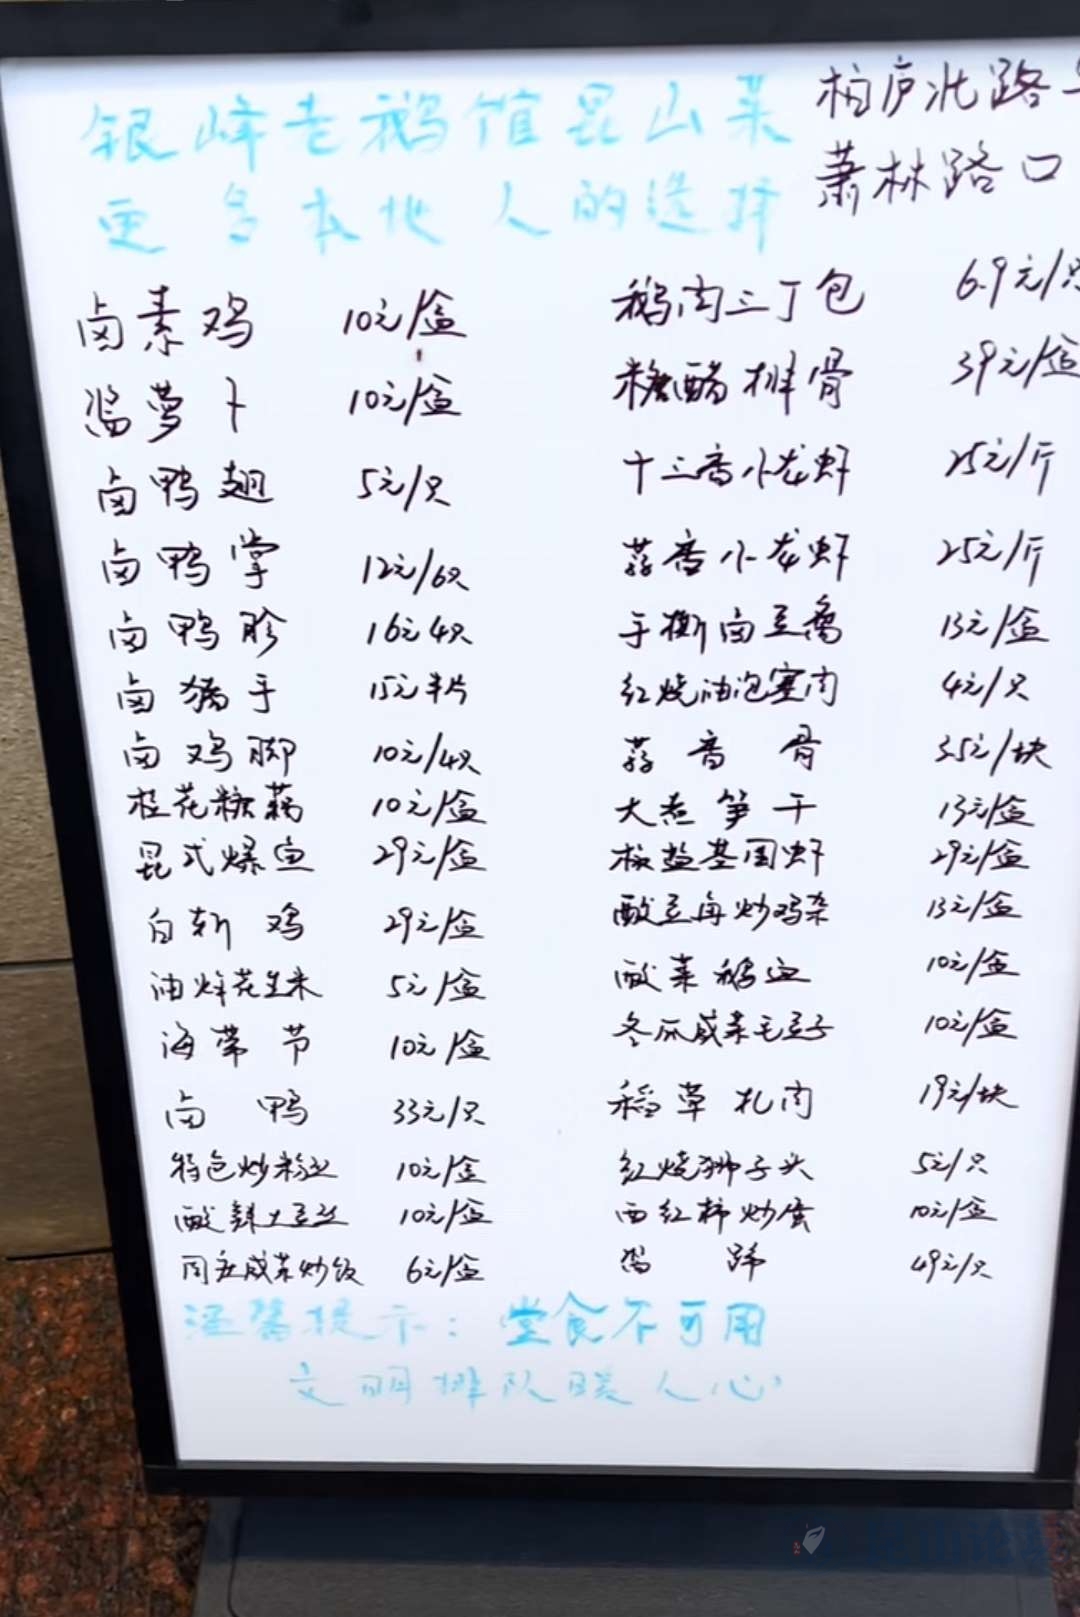 银峰老鹅馆昆山菜
更多本地人的选择
柏庐北路
萧林路口
卤素鸡 10元/盒
酱萝卜 10元/盒
卤鸭翅 5元/只
卤鸭掌 12元/6只
卤鸭胗 16元4只
卤猪手 15元半片
卤鸡脚 10元/4只
桂花糖藕 10元/盒
昆式爆鱼 29元/盒
白斩鸡 29元/盒
油炸花生米 5元/盒
海带节 10元/盒
卤鸭 33元/只
特色炒粉丝 10元/盒
酸辣土豆丝 10元/盒
周庄咸菜炒饭 6元/盒
鹅肉三丁包 6.9元/只
糖醋排骨 39元/盒
十三香小龙虾 25元/斤
蒜香小龙虾 25元/斤
手撕卤豆腐 13元/盒
红烧油泡塞肉 4元/只
蒜香骨 35元/块
大煮笋干 13元/盒
椒盐基围虾 29元/盒
酸豆角炒鸡杂 13元/盒
酸菜鹅血 10元/盒
冬瓜咸菜毛豆子 10元/盒
稻草扎肉 19元/块
红烧狮子头 5元/只
西红柿炒蛋 10元/盒
酱蹄 49元/只
温馨提示：堂食不可用
文明排队暖人心